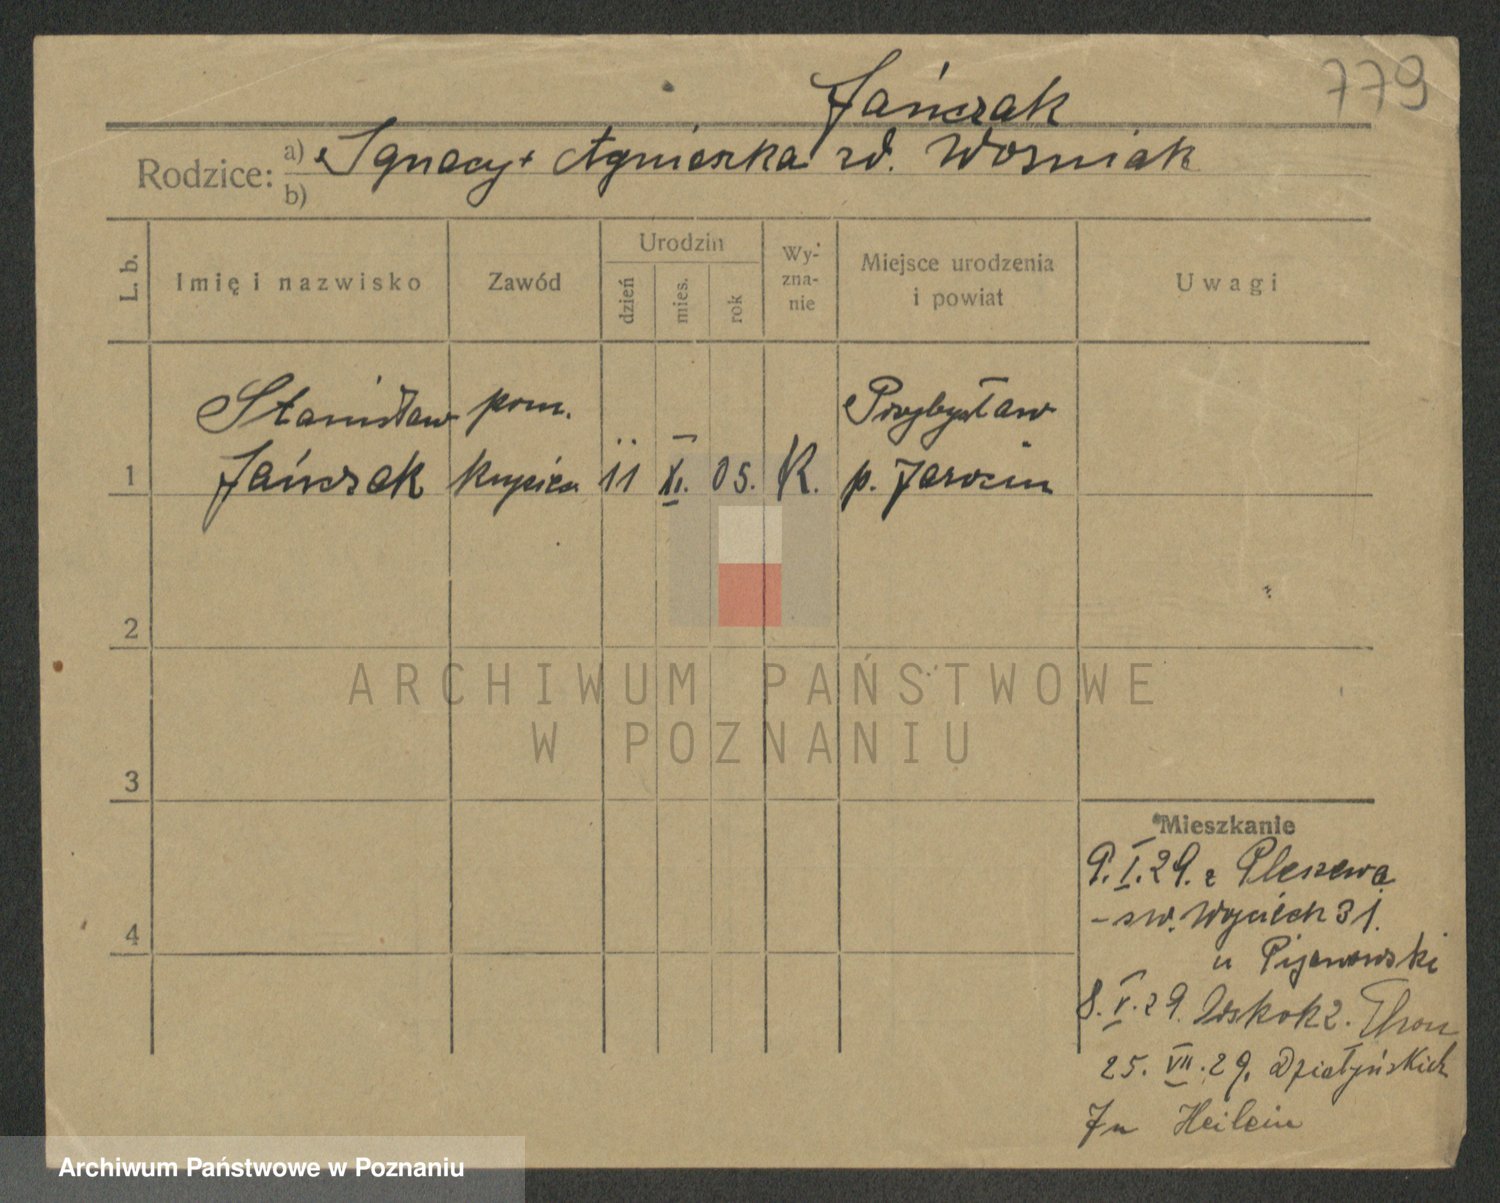 779
Jańczak
Rodzice: a) Ignacy + Agnieszka zd. Wosniak
b)
L. b. Imię i nazwisko Zawód Urodzin dzień mies. rok Wy-zna-nie Miejsce urodzenia i powiat Uwagi
Stanisław pom. Przybysław
1 Jańczak kupiec 11 XI. 05. K. p. Jarocin
2
ARCHIWUM PAŃSTWOWE
W POZNANIU
3
Mieszkanie
9. I. 29. z Pleszewa
4
– św. Wojciech 31.
u Pijanowski
8. V. 29.
25. VII. 29. Działyńskich
7 u Heilein
Archiwum Państwowe w Poznaniu